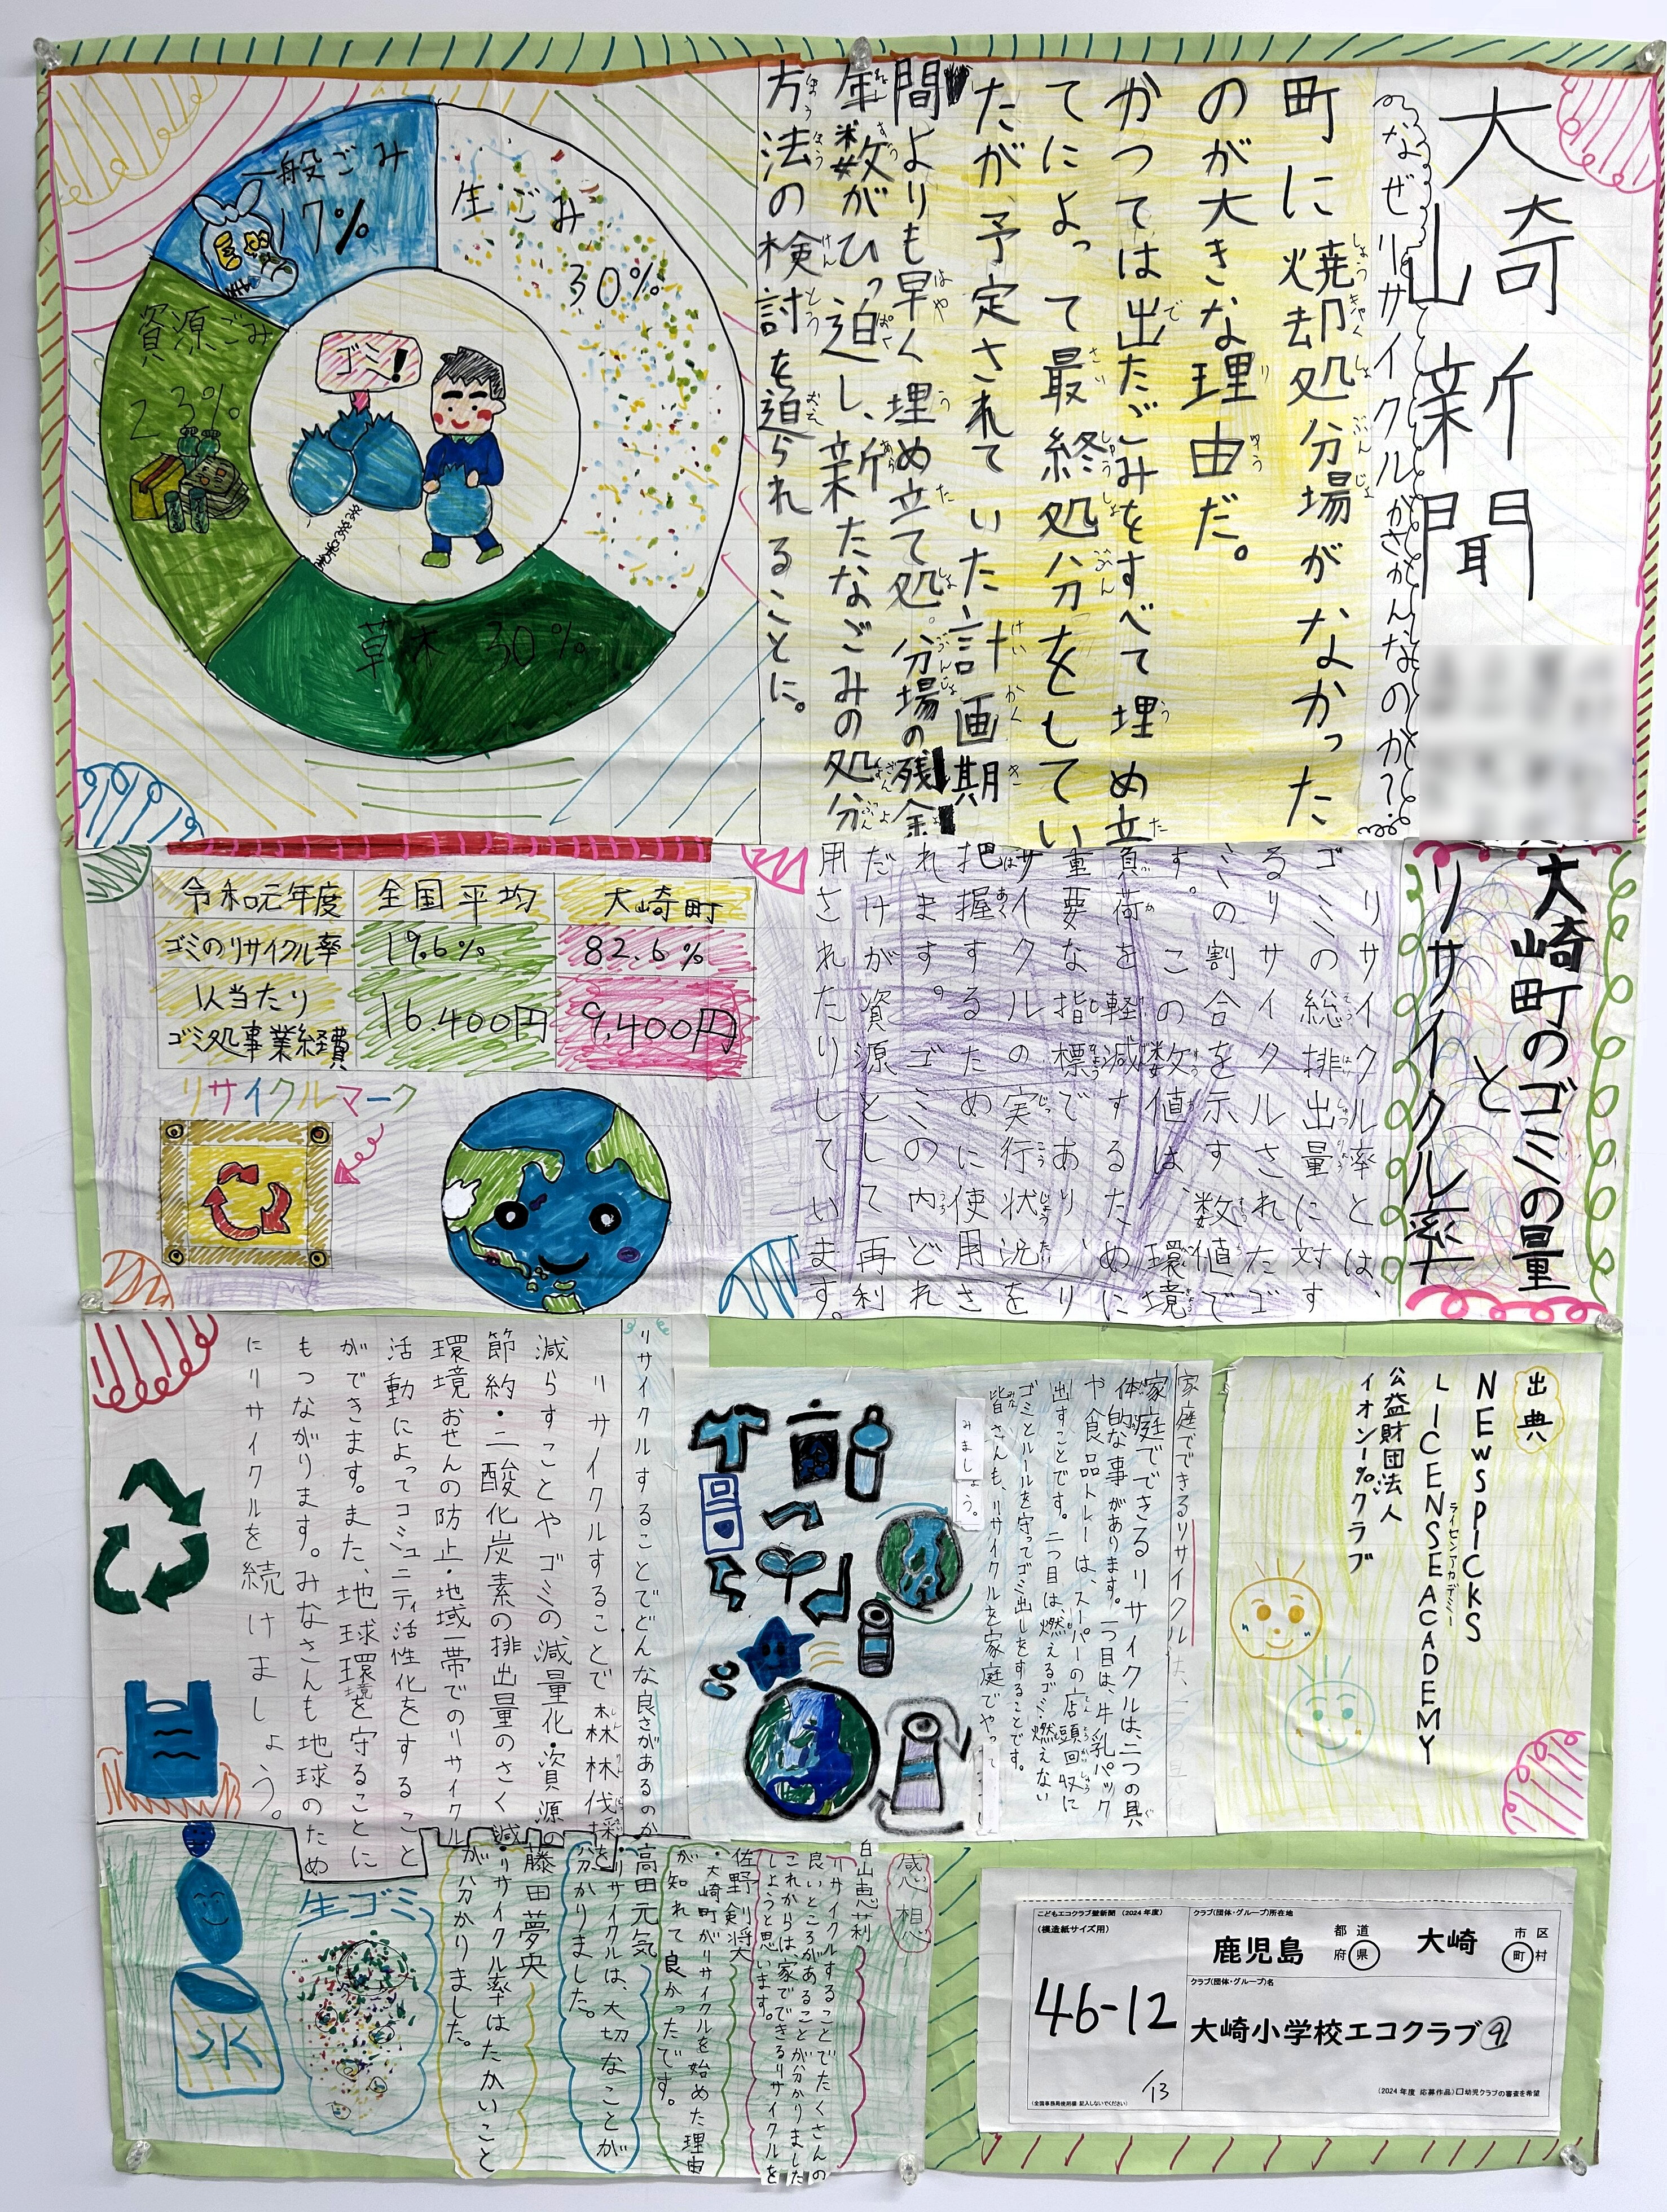 大崎新聞
なぜリサイクルがさかんなのか?
町に焼却処分場がなかった
のが大きな理由だ。
かつては出たごみをすべて埋め立
てによって最終処分をしてい
たが予定されていた計画期
間よりも早く埋め立て処分場の残余
年数がひっ迫し、新たなごみの処分
方法の検討を迫られることに。
一般ごみ
17%
生ごみ
30%
資源ごみ
23%
草木 30%
ゴミ!
大崎町のゴミの量
と
リサイクル率
リサイクル率とは、
ゴミの総排出量に対す
るリサイクルされたゴ
ミの割合を示す、数値で
す。この数値は、環境
負荷を軽減するために
重要な指標であり、リ
サイクルの実行状況を
把握するために使用さ
れます。ゴミの内どれ
だけが資源として再利
用されたりしています。
令和元年度 全国平均 大崎町
ゴミのリサイクル率 19.6% 82.6%
1人当たり
ゴミ処事業経費 16.400円 9,400円
リサイクルマーク
出典
NEWSPICKS
LICENSE ACADEMY
ライセンアカデミー
公益財団法人
イオン1%クラブ
家庭でできるリサイクルは、
家庭でできるリサイクルは、二つの具
体的な事があります。一つ目は、牛乳パック
や食品トレーは、スーパーの店頭回収に
出すことです。二つ目は燃えるゴミ・燃えない
ゴミとルールを守ってゴミ出しをすることです。
皆さんも、リサイクルを家庭でやって
みましょう。
リサイクルすることでどんな良さがあるのか
リサイクルすることで森林伐採を
減らすことやゴミの減量化・資源の
節約・二酸化炭素の排出量のさく減
環境おせんの防止・地域一帯でのリサイクル
活動によってコミュニティ活性化をすること
ができます。また、地球環境を守ることに
もつながります。みなさんも地球のため
にリサイクルを続けましょう。
感想
白山恵莉
リサイクルすることでたくさんの
良いところがあることが分かりました
これからは、家でできるリサイクルを
しようと思います。
佐野剣将
・大崎町がリサイクルを始めた理由
が知れて良かったです。
高田元気
・リサイクルは、大切なことが
分かりました。
藤田夢央
・リサイクル率はたかいこと
が分かりました。
生ゴミ
水
こどもエコクラブ壁新聞 (2024年度)
(模造紙サイズ用)
46-12
/13
(全国事務局使用欄 記入しないでください)
クラブ(団体・グループ)所在地
鹿児島 都道府県 大崎 市区町村
クラブ(団体・グループ)名
大崎小学校エコクラブ⑨
(2024年度 応募作品)□幼児クラブの審査を希望